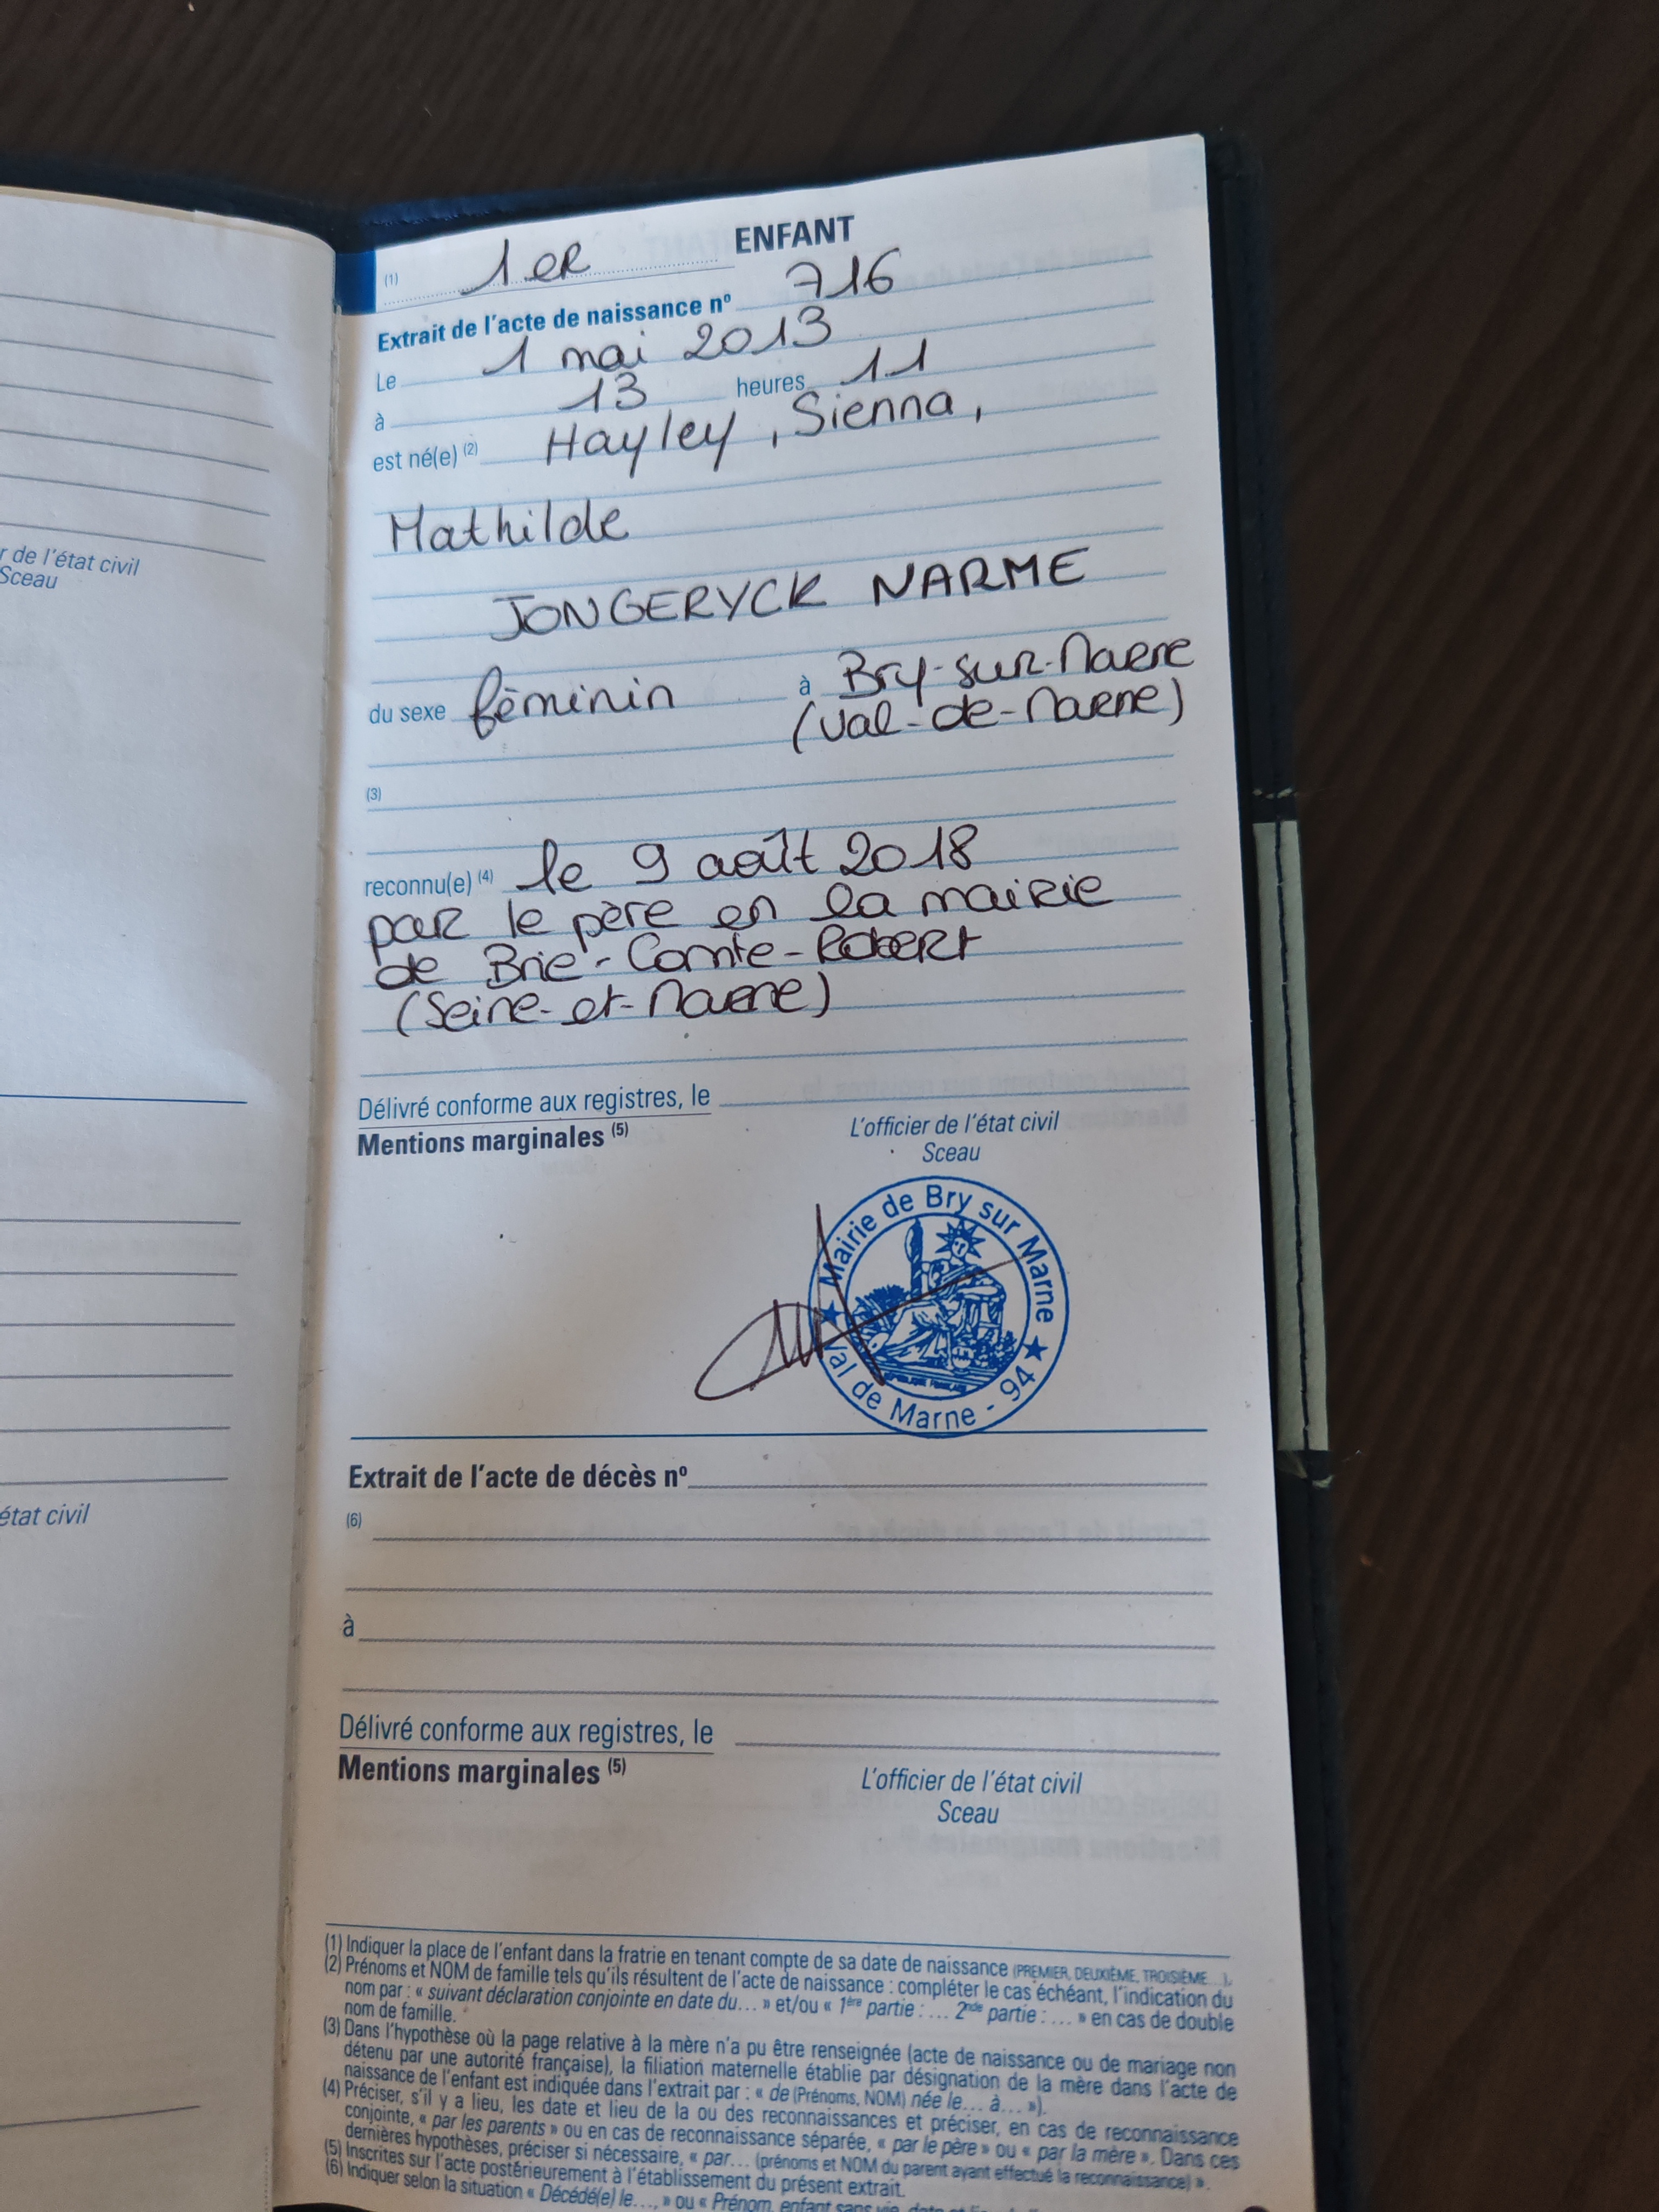 r de l'état civil
Sceau
état civil
(1) 1er ENFANT
Extrait de l'acte de naissance nº 716
Le 1 mai 2013
à 13 heures 11
est né(e) (2) Hayley, Sienna,
Mathilde
JONGERYCK NARME
du sexe féminin à Bry-sur-Marne
(Val-de-Marne)
(3)
reconnu(e) (4) le 9 août 2018
par le père en la mairie
de Brie-Comte-Robert
(Seine-et-Marne)
Délivré conforme aux registres, le
Mentions marginales (5)
L'officier de l'état civil
Sceau
Mairie de Bry sur Marne
Val de Marne - 94
Extrait de l'acte de décès nº
(6)
à
Délivré conforme aux registres, le
Mentions marginales (5)
L'officier de l'état civil
Sceau
(1) Indiquer la place de l'enfant dans la fratrie en tenant compte de sa date de naissance (PREMIER, DEUXIÈME, TROISIÈME...).
(2) Prénoms et NOM de famille tels qu'ils résultent de l'acte de naissance : compléter le cas échéant, l'indication du
nom par : « suivant déclaration conjointe en date du... » et/ou « 1ère partie : ... 2nde partie : ... » en cas de double
nom de famille.
(3) Dans l'hypothèse où la page relative à la mère n'a pu être renseignée (acte de naissance ou de mariage non
détenu par une autorité française), la filiation maternelle établie par désignation de la mère dans l'acte de
naissance de l'enfant est indiquée dans l'extrait par : « de (Prénoms, NOM) née le... à... »).
(4) Préciser, s'il y a lieu, les date et lieu de la ou des reconnaissances et préciser, en cas de reconnaissance
conjointe, « par les parents » ou en cas de reconnaissance séparée, « par le père » ou « par la mère ». Dans ces
dernières hypothèses, préciser si nécessaire, « par... (prénoms et NOM du parent ayant effectué la reconnaissance) ».
(5) Inscrites sur l'acte postérieurement à l'établissement du présent extrait.
(6) Indiquer selon la situation « Décédé(e) le..., » ou « Prénom, enfant sans vie, date et